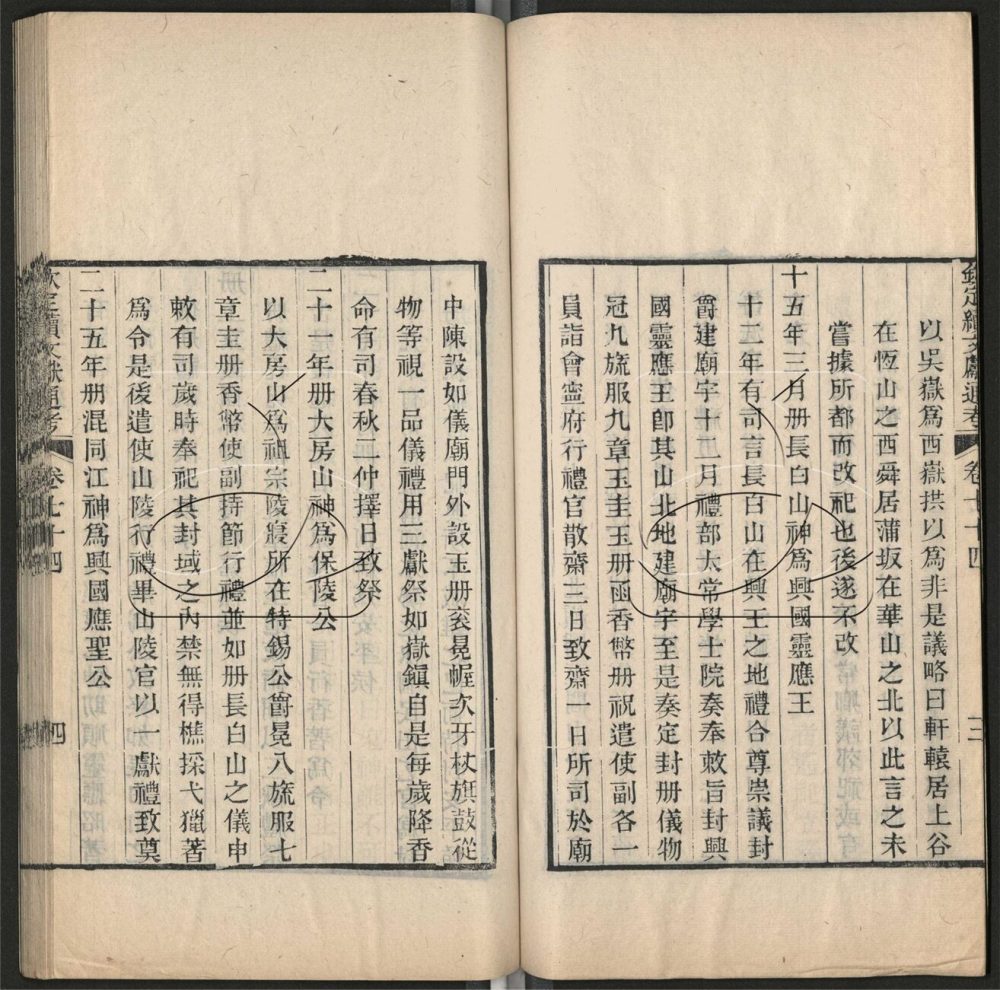 欽定續文獻通考 卷七十四 三
以吳嶽爲西嶽拱以爲非是議略曰軒轅居上谷
在恆山之西舜居蒲坂在華山之北以此言之未
嘗據所都而改祀也後遂不改
十五年三月册長白山神爲興國靈應王
十二年有司言長白山在興王之地禮合尊崇議封
爵建廟宇十二月禮部太常學士院奏奉敕旨封興
國靈應王卽其山北地建廟宇至是奏定封册儀物
冠九旒服九章玉圭玉册函香幣册祝遣使副各一
員詣會寧府行禮官散齋三日致齋一日所司於廟
中陳設如儀廟門外設玉册袞冕幄次牙杖旗鼓從
物等視一品儀禮用三獻祭如嶽鎭自是每歲降香
命有司春秋二仲擇日致祭
二十一年册大房山神爲保陵公
以大房山爲祖宗陵寢所在特錫公爵冕八旒服七
章圭册香幣使副持節行禮並如册長白山之儀申
敕有司歲時奉祀其封域之內禁無得樵採弋獵著
爲令是後遣使山陵行禮畢山陵官以一獻禮致奠
二十五年册混同江神爲興國應聖公
欽定續文獻通考 卷七十四 四